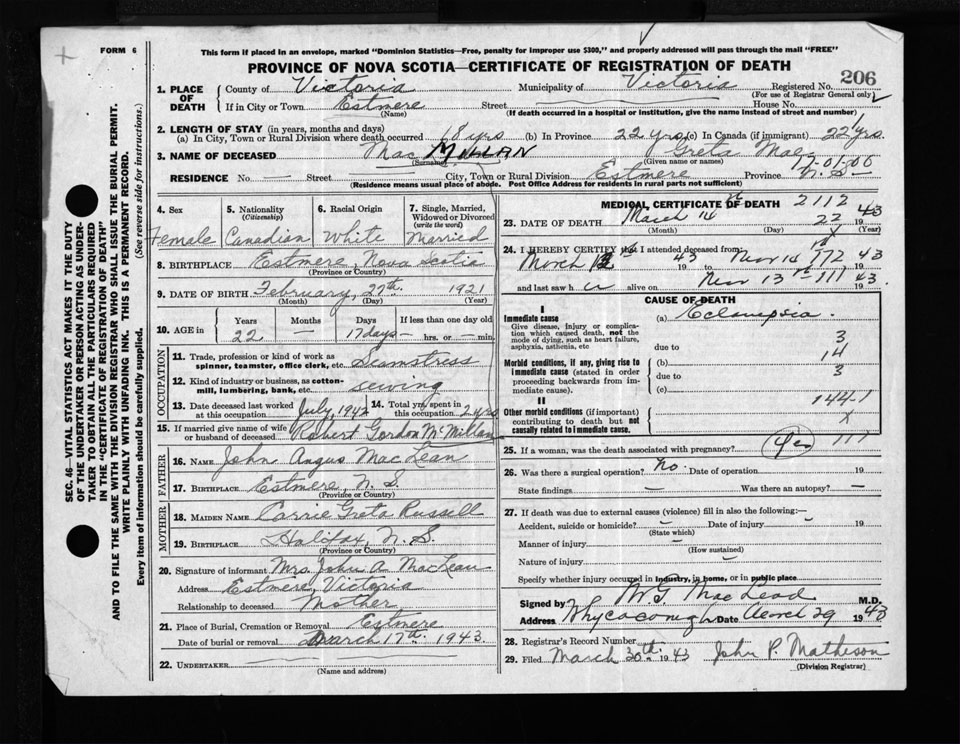 FORM 6
This form if placed in an envelope, marked "Dominion Statistics—Free, penalty for improper use $300," and properly addressed will pass through the mail "FREE"
PROVINCE OF NOVA SCOTIA—CERTIFICATE OF REGISTRATION OF DEATH
206
1. PLACE OF DEATH
County of Victoria Municipality of Victoria Registered No.
(For use of Registrar General only)
If in City or Town Estmere Street House No.
(Name) (If death occurred in a hospital or institution, give the name instead of street and number)
2. LENGTH OF STAY (in years, months and days)
(a) In City, Town or Rural Division where death occurred 18 yrs (b) In Province 22 yrs (c) In Canada (if immigrant) 22 yrs.
3. NAME OF DECEASED Mac Millan Greta Mae
(Surname) (Given name or names)
RESIDENCE No. — Street — City, Town or Rural Division Estmere Province N. S.
(Residence means usual place of abode. Post Office Address for residents in rural parts not sufficient)
4. Sex Female
5. Nationality (Citizenship) Canadian
6. Racial Origin White
7. Single, Married, Widowed or Divorced (write the word) Married
8. BIRTHPLACE Estmere, Nova Scotia
(Province or Country)
9. DATE OF BIRTH February, 27th. 1921
(Month) (Day) (Year)
10. AGE in Years 22 Months — Days 17 days If less than one day old — hrs. or — min.
OCCUPATION
11. Trade, profession or kind of work as spinner, teamster, office clerk, etc. Seamstress
12. Kind of industry or business, as cotton-mill, lumbering, bank, etc. Sewing
13. Date deceased last worked at this occupation July, 1942
14. Total yrs. spent in this occupation 2 yrs
15. If married give name of wife or husband of deceased Robert Gordon McMillan
FATHER
16. NAME John Angus MacLean
17. BIRTHPLACE Estmere, N. S.
(Province or Country)
MOTHER
18. MAIDEN NAME Carrie Greta Russell
19. BIRTHPLACE Halifax, N. S.
(Province or Country)
20. Signature of informant Mrs. John A MacLean
Address Estmere, Victoria
Relationship to deceased Mother
21. Place of Burial, Cremation or Removal Estmere
Date of burial or removal March 17th. 1943
22. UNDERTAKER
MEDICAL CERTIFICATE OF DEATH
2112
23. DATE OF DEATH March 14 1943
22
(Month) (Day) (Year)
24. I HEREBY CERTIFY that I attended deceased from:
March 43 to 14 43
772
and last saw her alive on 13 1943.
CAUSE OF DEATH
I
Immediate cause (a) Eclampsia.
Give disease, injury or complication which caused death, not the mode of dying, such as heart failure, asphyxia, asthenia, etc
due to 3
Morbid conditions, if any, giving rise to immediate cause (stated in order proceeding backwards from immediate cause).
(b) 14
due to 3
(c)
II
Other morbid conditions (if important) contributing to death but not causally related to immediate cause.
144.1
X
25. If a woman, was the death associated with pregnancy? Yes 777
26. Was there a surgical operation? No. Date of operation 19
State findings — Was there an autopsy? —
27. If death was due to external causes (violence) fill in also the following:—
Accident, suicide or homicide? — Date of injury 19
(State which)
Manner of injury —
(How sustained)
Nature of injury —
Specify whether injury occurred in industry, in home, or in public place
Signed by W. G. MacLeod M.D.
Address Whycocomagh Date 29 1943
28. Registrar's Record Number
29. Filed March 30th. 1943 John P. Matheson
(Division Registrar)
SEC. 46—VITAL STATISTICS ACT MAKES IT THE DUTY
OF THE UNDERTAKER OR PERSON ACTING AS UNDERTAKER TO OBTAIN ALL THE PARTICULARS REQUIRED
IN THE "CERTIFICATE OF REGISTRATION OF DEATH"
AND TO FILE THE SAME WITH THE DIVISION REGISTRAR WHO SHALL ISSUE THE BURIAL PERMIT.
WRITE PLAINLY WITH UNFADING INK. THIS IS A PERMANENT RECORD.
Every item of information should be carefully supplied. (See reverse side for instructions.)